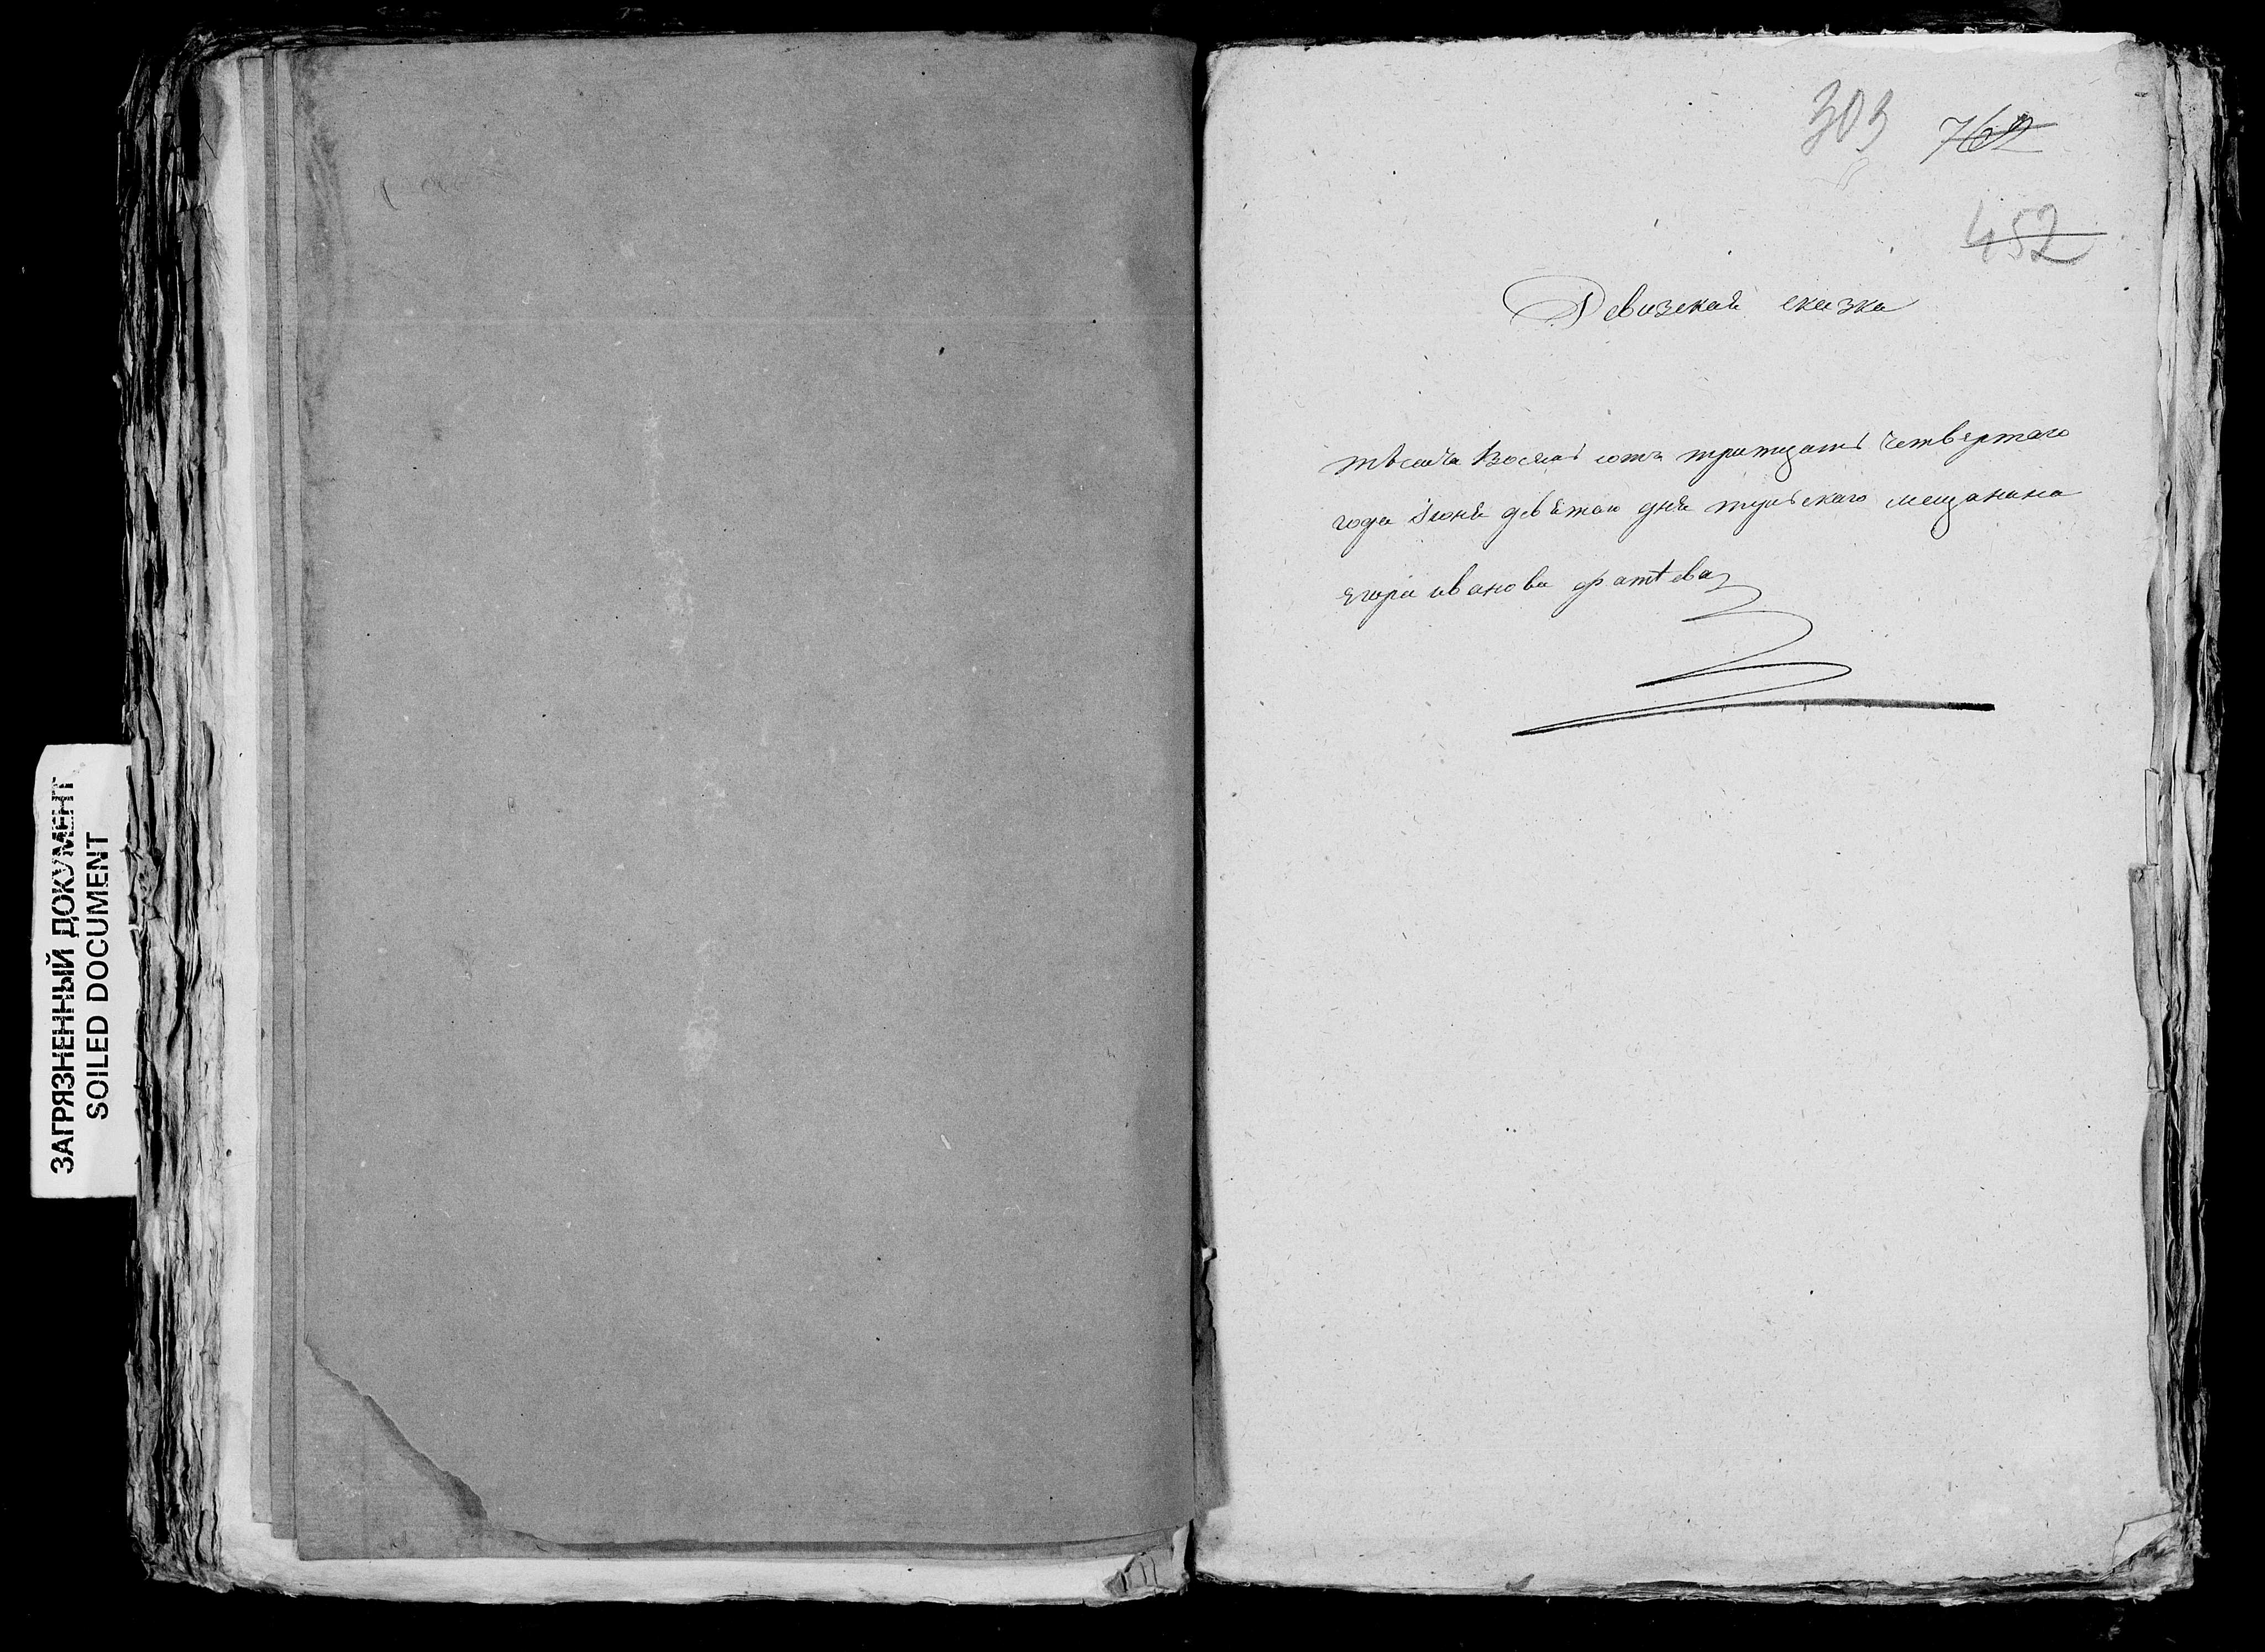 ЗАГРЯЗНЕННЫЙ ДОКУМЕНТ
SOILED DOCUMENT
303 762
452
Ревизская сказка
тысеча Восемь сотъ тритцать четвертаго
года Июня девятаго дня тульскаго мещанина
Егора иванова фатѣева